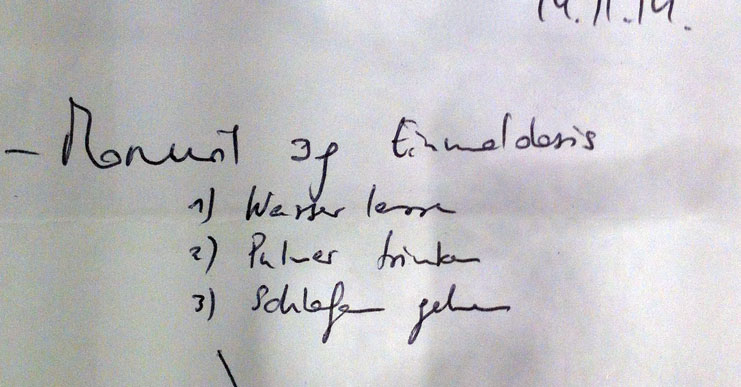 14.11.14.
- Monuril 3g Einmaldosis
1) Wasser lassen
2) Pulver trinken
3) Schlafen gehen